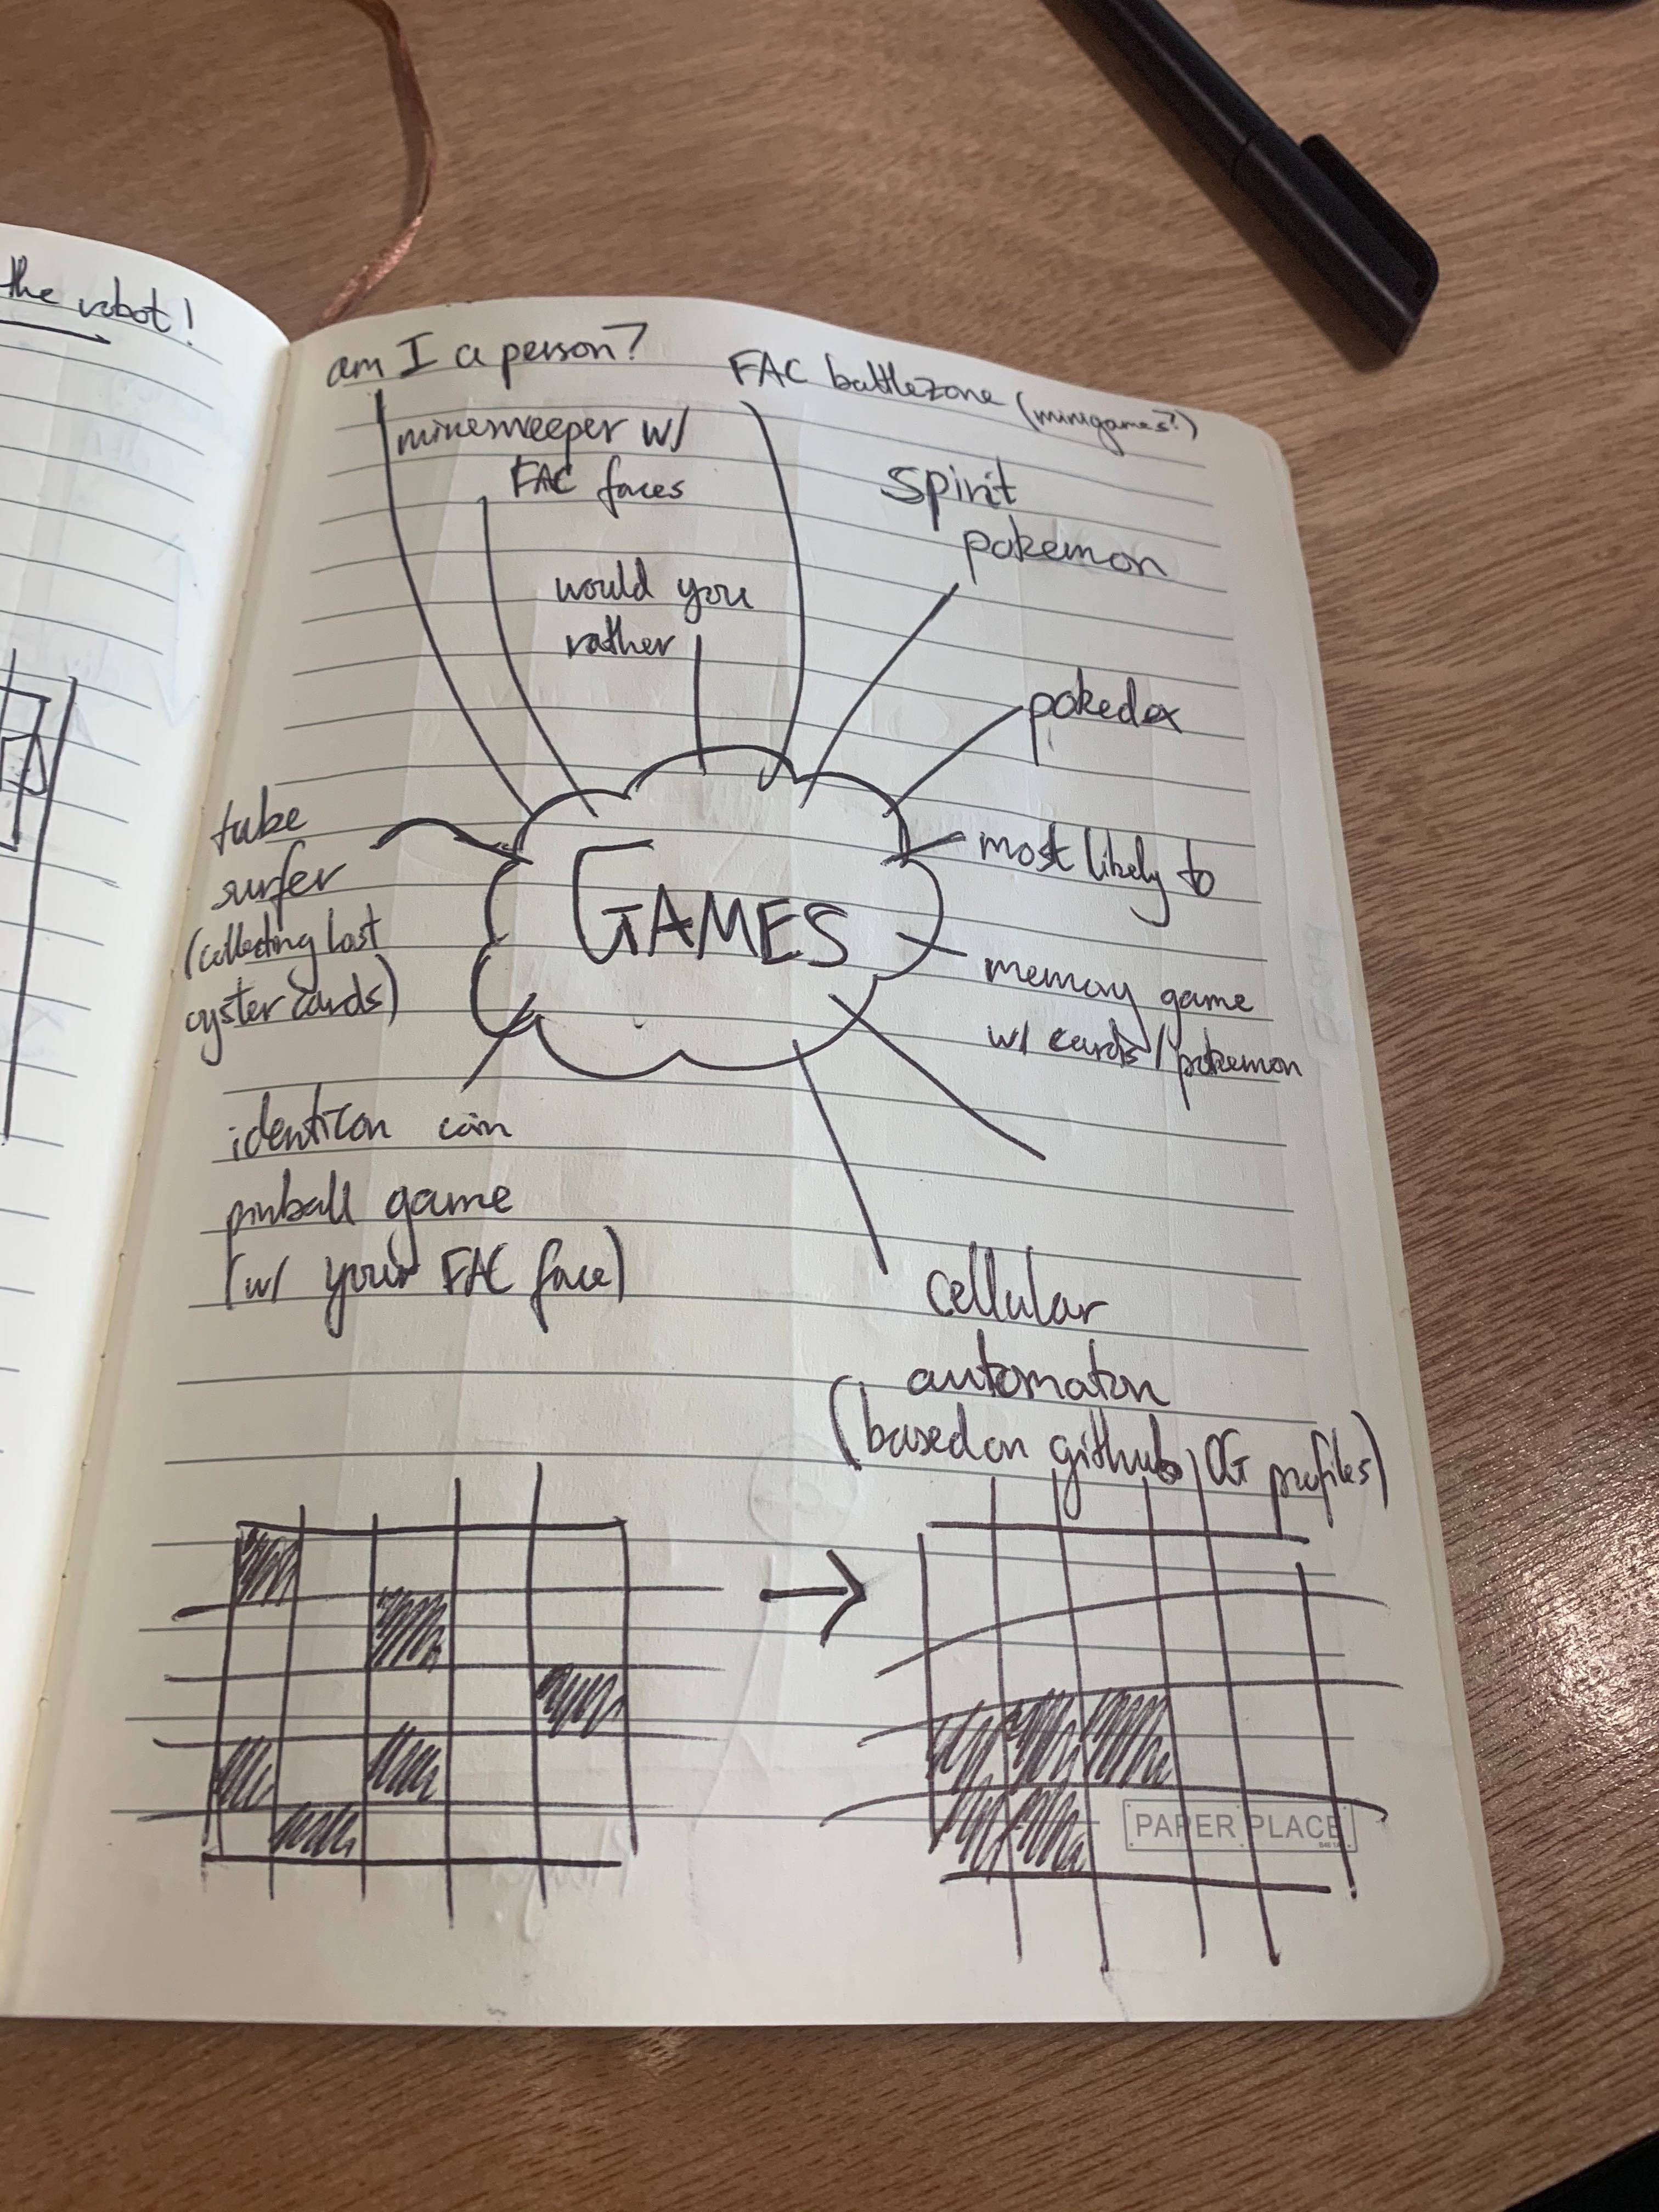 the robot!
am I a person?
FAC battlezone (minigames?)
minesweeper w/
FAC faces
spirit
pokemon
would you
rather
pokedex
tube
surfer
(collecting lost
oyster cards)
GAMES
most likely to
memory game
w/ cards/pokemon
identicon coin
pinball game
(w/ your FAC face)
cellular
automaton
(based on github OG profiles)
PAPER PLACE